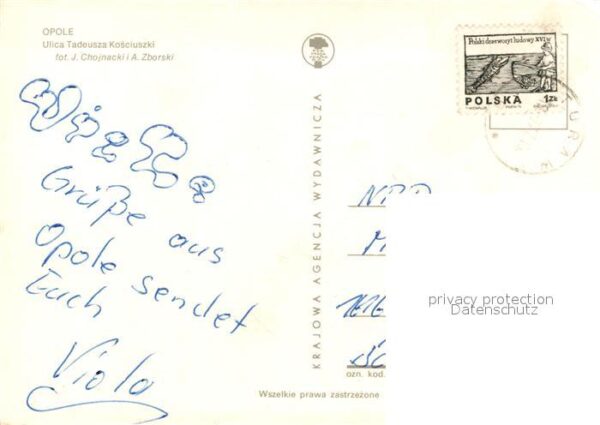 OPOLE
Ulica Tadeusza Kościuszki
fot. J. Chojnacki i A. Zborski
Polski drzeworyt ludowy XVI w.
POLSKA 1 ZŁ
KRAJOWA AGENCJA WYDAWNICZA
Viele
Grüße aus
Opole sendet
Euch
Viola
NRD
privacy protection
Datenschutz
ozn. kod.
Wszelkie prawa zastrzeżone